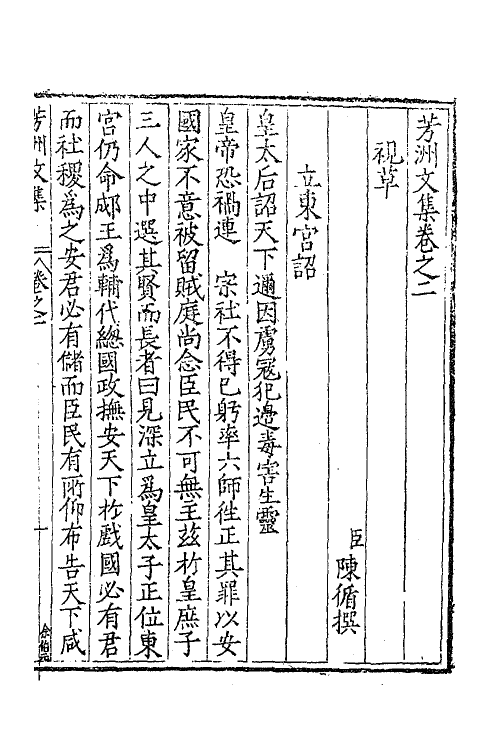 芳洲文集卷之二
視草
臣陳循撰
立東宮詔
皇太后詔天下邇因虜寇犯邊毒害生靈
皇帝恐禍連 宗社不得已躬率六師徃正其罪以安
國家不意被留賊庭尚念臣民不可無主茲於皇庶子
三人之中選其賢而長者曰見深立爲皇太子正位東
宮仍命郕王爲輔代總國政撫安天下於戲國必有君
而社稷爲之安君必有儲而臣民有所仰布告天下咸
芳洲文集 卷之二 一